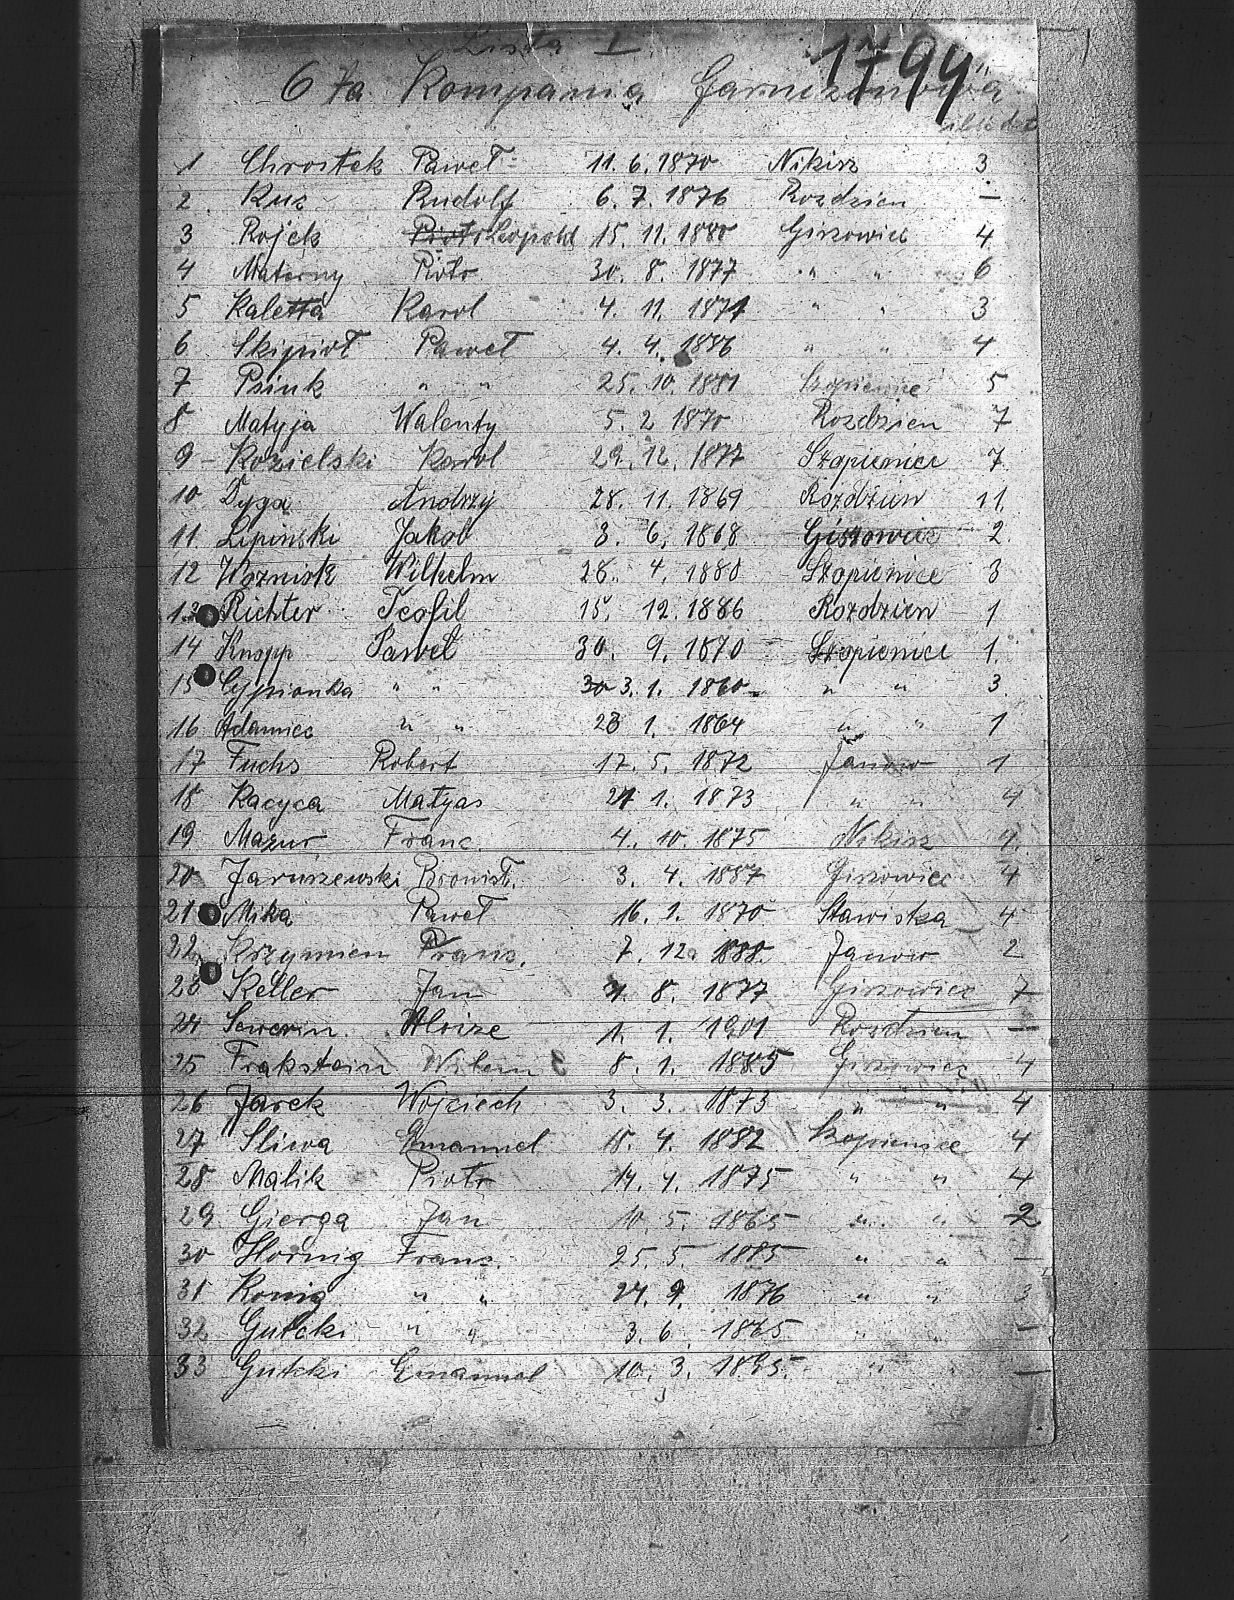 Lista I
1799
6ta Kompania Garnizonowa
ilu dzt
1 Chrostek Paweł 11. 6. 1870 Nikisz 3
2. Kuz Rudolf 6. 7. 1876 Rozdzien —
3 Rojek Piotr Leopold 15. 11. 1880 Giszowiec 4
4 Materny Piotr 30. 8. 1877 " " 6
5 Kaletta Karol 4. 11. 1871 " " 3
6 Skipioł Paweł 4. 4. 1886 " " 4
7 Psiuk " " 25. 10. 1881 Szopienice 5
8 Matyja Walenty 5. 2 1870 Rozdzien 7
9 – Kozielski Karol 29. 12. 1877 Szopienice 7
10 Dyga Andrzy 28. 11. 1869 Rozdzien 11.
11. Lipinski Jakob 3. 6. 1868 Giszowiec 2.
12 Wozniok Wilhelm 28. 4. 1880 Szopienice 3
13 Richter Teofil 15. 12. 1886 Rozdzien 1
14 Knopp Paweł 30. 9. 1870 Szopienice 1.
15 Cypionka " " 30 3. 1. 1860. " " 3.
16 Adamiec " " 23 1. 1864 " " 1
17 Fuchs Robert 17. 5. 1872 Janow 1
18 Kacyca Matyas 21 1. 1873 " " 4
19 Mazur Franc. 4. 10. 1875 Nikisz 9.
20 Jaruszewski Bronisł. 3. 4. 1887 Giszowiec 4
21 Mika Paweł 16. 1. 1870 Stawiska 4
22. Krzymien Franc. 7. 12. 1888. Janow 2
23 Keller Jan 4. 8. 1877 Giszowiec 7
24 Sewerin Aloize 1. 1. 1901 Rozdzien —
25 Frakstein Wilem 8. 1. 1885 Giszowiec 4
26 Jarek Wojciech 3. 3. 1873 " " 4
27 Sliwa Emanuel 15. 4. 1882 Szopienice 4
28 Malik Piotr 14. 4. 1875 " " 4
29 Gierga Jan 10. 5. 1865 " " 2
30 Hornig Franc. 25. 5. 1885 " " —
31 Konig " " 24. 9. 1876 " " 3
32 Gutcki " " 3. 6. 1865 " " —
33 Gutcki Emanuel 10. 3. 1895. " " —